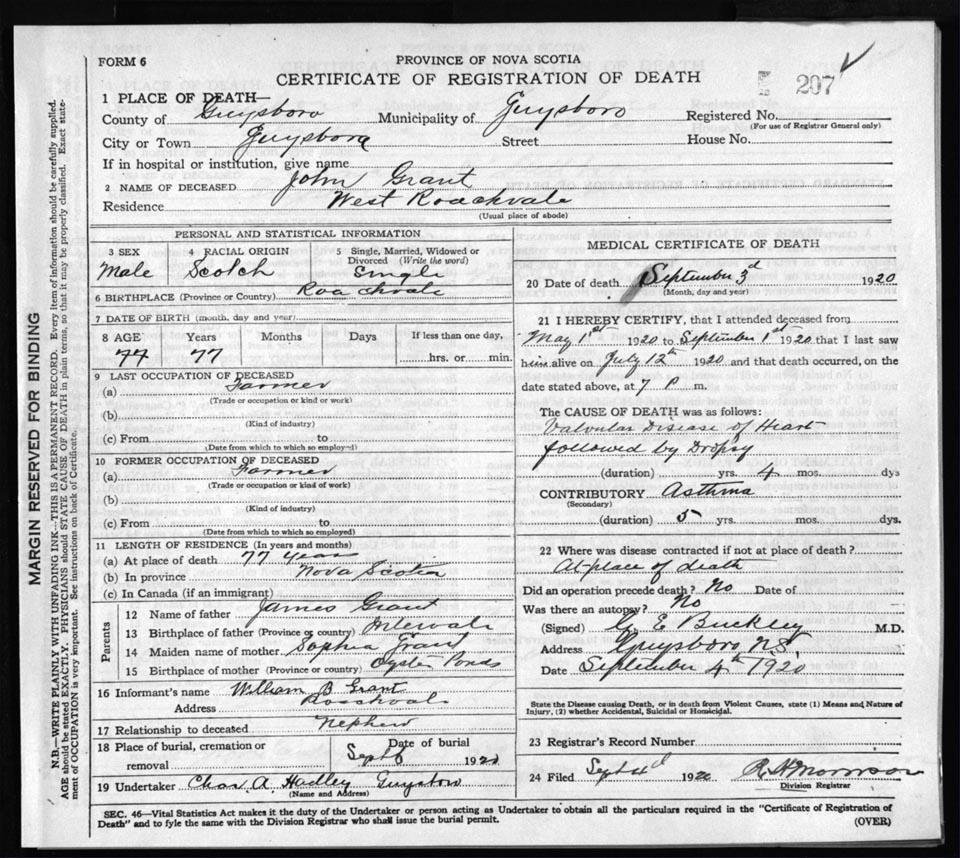 FORM 6
PROVINCE OF NOVA SCOTIA
CERTIFICATE OF REGISTRATION OF DEATH
207
1 PLACE OF DEATH—
County of Guysboro Municipality of Guysboro Registered No.
(For use of Registrar General only)
City or Town Guysboro Street House No.
If in hospital or institution, give name
2 NAME OF DECEASED John Grant
Residence West Roachvale
(Usual place of abode)
PERSONAL AND STATISTICAL INFORMATION
3 SEX 4 RACIAL ORIGIN 5 Single, Married, Widowed or Divorced (Write the word)
Male Scotch Single
6 BIRTHPLACE (Province or Country) Roachvale
7 DATE OF BIRTH (month, day and year)
8 AGE Years Months Days If less than one day,
77 77 hrs. or min.
9 LAST OCCUPATION OF DECEASED
(a) Farmer
(Trade or occupation or kind of work)
(b)
(Kind of industry)
(c) From to
(Date from which to which so employed)
10 FORMER OCCUPATION OF DECEASED
(a) Farmer
(Trade or occupation or kind of work)
(b)
(Kind of industry)
(c) From to
(Date from which to which so employed)
11 LENGTH OF RESIDENCE (In years and months)
(a) At place of death 77 years
(b) In province Nova Scotia
(c) In Canada (if an immigrant)
Parents
12 Name of father James Grant
13 Birthplace of father (Province or country) Intervale
14 Maiden name of mother Sophia Grant
15 Birthplace of mother (Province or country) Oyster Ponds
16 Informant's name William B Grant
Address Roachvale
17 Relationship to deceased Nephew
18 Place of burial, cremation or removal Date of burial
Sept 1920
19 Undertaker Chas A. Hadley Guysboro
(Name and Address)
MEDICAL CERTIFICATE OF DEATH
20 Date of death September 3d 1920
(Month, day and year)
21 I HEREBY CERTIFY, that I attended deceased from
May 1st 1920 to September 1st 1920 that I last saw
him alive on July 12th 1920 and that death occurred, on the
date stated above, at 7 P m.
The CAUSE OF DEATH was as follows:
Valvular Disease of Heart
followed by Dropsy
(duration) yrs. 4 mos. dys
CONTRIBUTORY Asthma
(Secondary)
(duration) 5 yrs. mos. dys.
22 Where was disease contracted if not at place of death?
At place of death
Did an operation precede death? No Date of
Was there an autopsy? No
(Signed) G E Buckley M.D.
Address Guysboro, N.S.
Date September 4th 1920
State the Disease causing Death, or in death from Violent Causes, state (1) Means and Nature of
Injury, (2) whether Accidental, Suicidal or Homicidal.
23 Registrar's Record Number
24 Filed Sept 4d 1920
Division Registrar
SEC. 46—Vital Statistics Act makes it the duty of the Undertaker or person acting as Undertaker to obtain all the particulars required in the "Certificate of Registration of
Death" and to fyle the same with the Division Registrar who shall issue the burial permit.
(OVER)
MARGIN RESERVED FOR BINDING
N.B.—WRITE PLAINLY WITH UNFADING INK—THIS IS A PERMANENT RECORD. Every item of information should be carefully supplied.
AGE should be stated EXACTLY. PHYSICIANS should STATE CAUSE OF DEATH in plain terms, so that it may be properly classified. Exact state-
ment of OCCUPATION is very important. See instructions on back of Certificate.